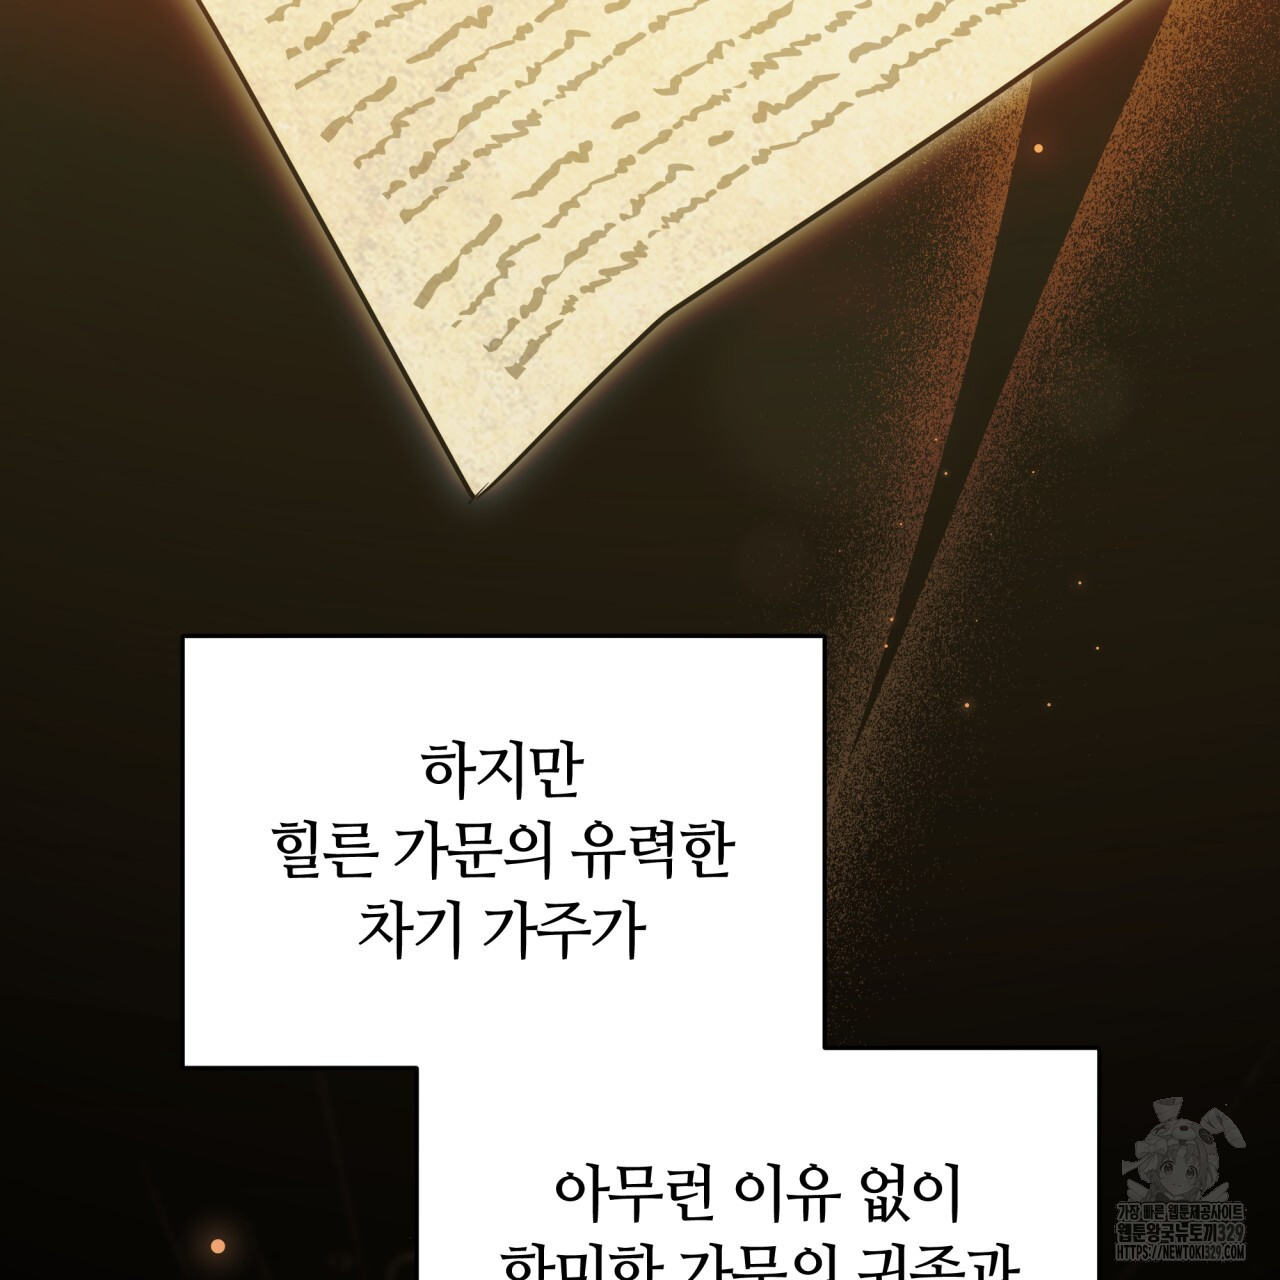 하지만
힐른 가문의 유력한
차기 가주가
아무런 이유 없이
한미한 가문의 귀족과
가장 빠른 웹툰제공사이트
웹툰왕국뉴토끼329
HTTPS://NEWTOKI329.COM